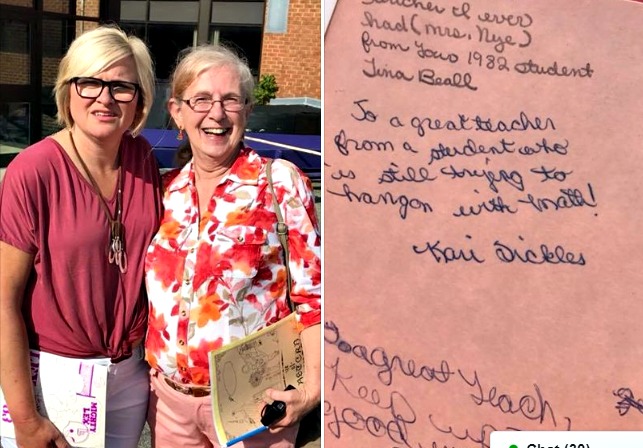 MIGHTY
LEX
teacher I ever
had (mrs. Nye)
from your 1982 student
Tina Beall
To a great teacher
from a student who
is still trying to
hang on with math!
Kari Sickles
To a great Teach
Keep up
good
Chat (30)